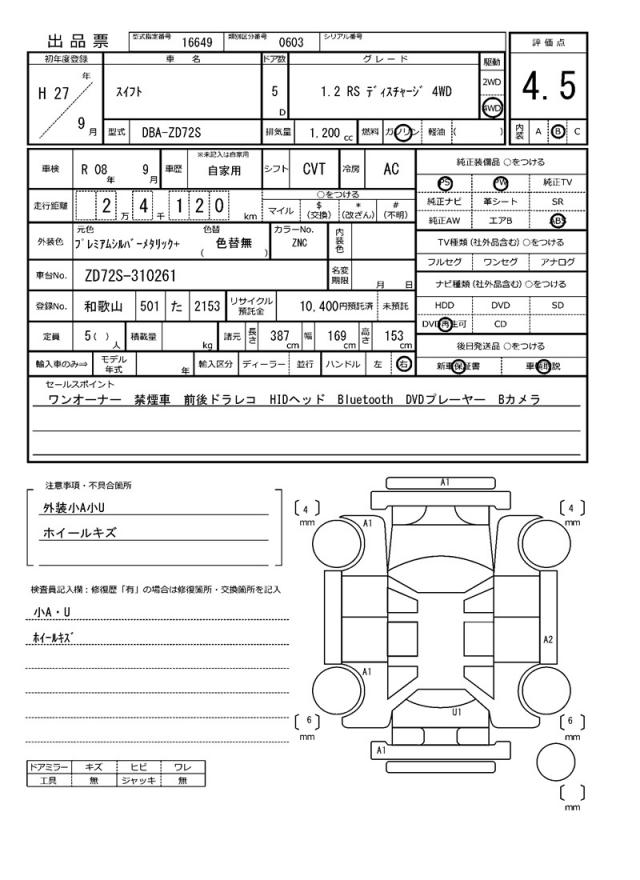 出品票 型式指定番号 16649 類別区分番号 0603 シリアル番号
評価点
初年度登録 車名 ドア数 グレード 駆動
H 27 年 9 月 スイフト 5 D 1.2 RS ディスチャージ 4WD 2WD 4WD
4.5
型式 DBA-ZD72S 排気量 1.200 cc 燃料 ガソリン 軽油 ( ) 内装 A B C
車検 R 08 年 9 月 車歴 ※未記入は自家用 自家用 シフト CVT 冷房 AC
純正装備品 ○をつける
PS PW 純正TV
純正ナビ 革シート SR
純正AW エアB ABS
走行距離 2 万 4 千 1 2 0 km ○をつける マイル $ (交換) * (改ざん) # (不明)
外装色 元色 プレミアムシルバーメタリック+ 色替 ( 色替無 ) カラーNo. ZNC 内装色
TV種類 (社外品含む) ○をつける
フルセグ ワンセグ アナログ
車台No. ZD72S-310261 名変期限 月 日
ナビ種類 (社外品含む) ○をつける
登録No. 和歌山 501 た 2153 リサイクル預託金 10,400円預託済 未預託
HDD DVD SD
DVD再生可 CD
定員 5( ) 人 積載量 kg 諸元 長さ 387 cm 幅 169 cm 高さ 153 cm
後日発送品 ○をつける
輸入車のみ⇒ モデル年式 年 輸入区分 ディーラー 並行 ハンドル 左 右
新車保証書 車輌取説
セールスポイント
ワンオーナー 禁煙車 前後ドラレコ HIDヘッド Bluetooth DVDプレーヤー Bカメラ
注意事項・不具合箇所
外装小A小U
ホイールキズ
検査員記入欄:修復歴「有」の場合は修復箇所・交換箇所を記入
小A・U
ホイールキズ
ドアミラー キズ ヒビ ワレ
工具 無 ジャッキ 無
A1
4 mm
A1
4 mm
A2
A1
U1
6 mm
6 mm
A1
mm